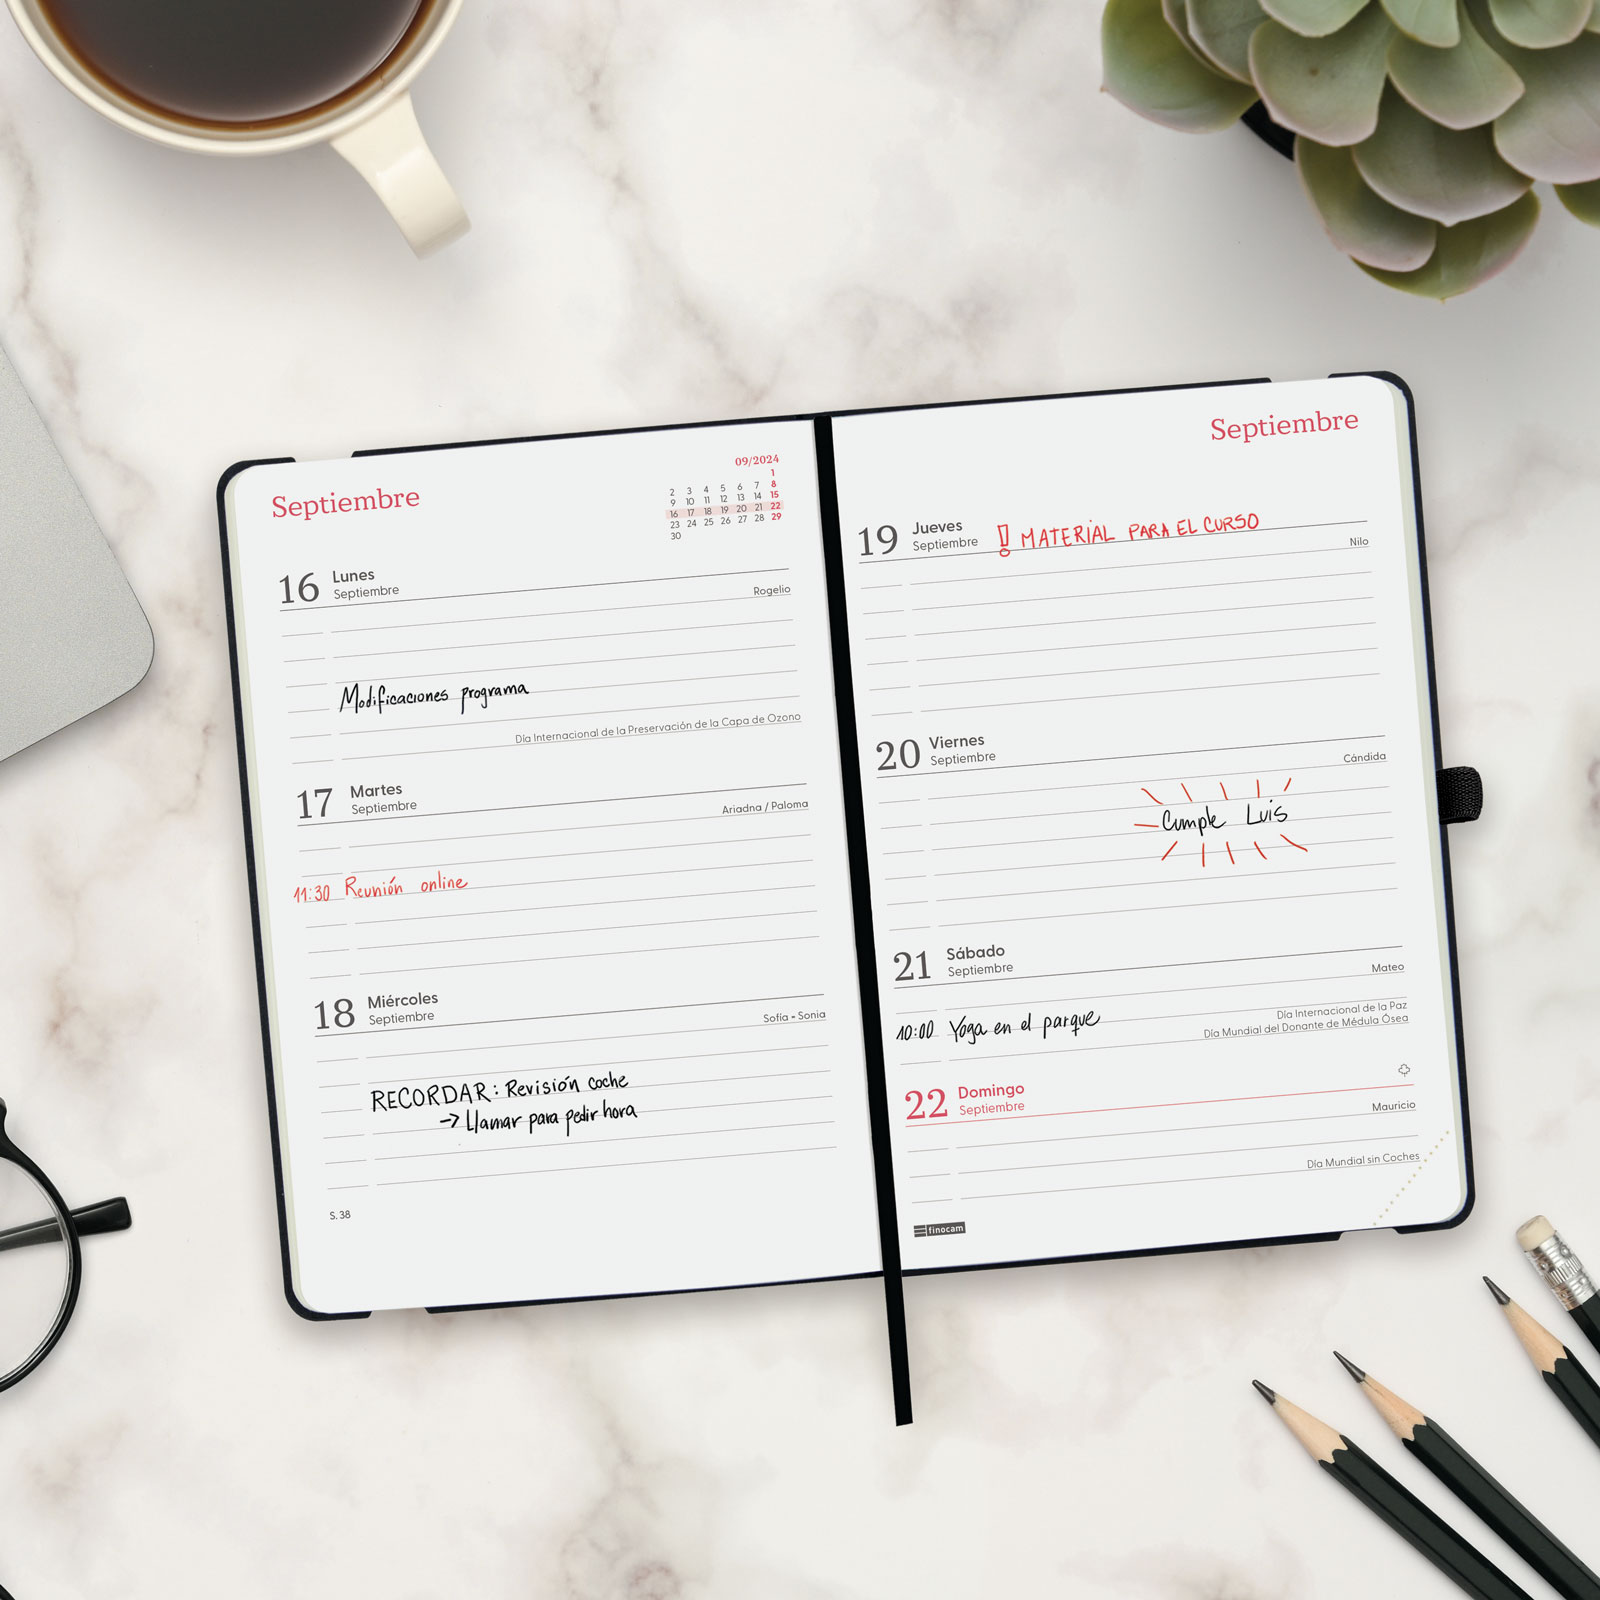 Septiembre
09/2024
1
2 3 4 5 6 7 8
9 10 11 12 13 14 15
16 17 18 19 20 21 22
23 24 25 26 27 28 29
30
16 Lunes
Septiembre
Rogelio
Modificaciones programa
Día Internacional de la Preservación de la Capa de Ozono
17 Martes
Septiembre
Ariadna / Paloma
11:30 Reunión online
18 Miércoles
Septiembre
Sofía - Sonia
RECORDAR: Revisión coche
→ Llamar para pedir hora
S. 38
Septiembre
19 Jueves
Septiembre
! MATERIAL PARA EL CURSO
Nilo
20 Viernes
Septiembre
Cándida
Cumple Luis
21 Sábado
Septiembre
Mateo
Día Internacional de la Paz
10:00 Yoga en el parque
Día Mundial del Donante de Médula Ósea
22 Domingo
Septiembre
Mauricio
Día Mundial sin Coches
finocam